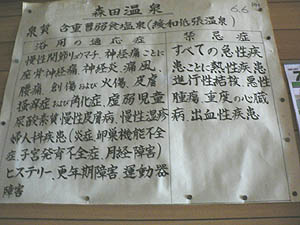 森田温泉
6.6
泉質 含重曹弱食塩泉(緩和低張温泉)
浴用の適応症
慢性関節リウマチ、神経痛ことに
座骨神経痛、神経炎、痛風、
腰痛、創傷および火傷、皮膚
掻痒症および角化症、虚弱児童
尿酸素質慢性皮膚病、慢性湿疹
婦人科疾患(炎症、卵巣機能不全
症、子宮発育不全症、月経障害)
ヒステリー、更年期障害、運動器
障害
禁忌症
すべての急性疾
患ことに熱性疾患
進行性結核、悪性
腫瘍、重度の心臓
病、出血性疾患